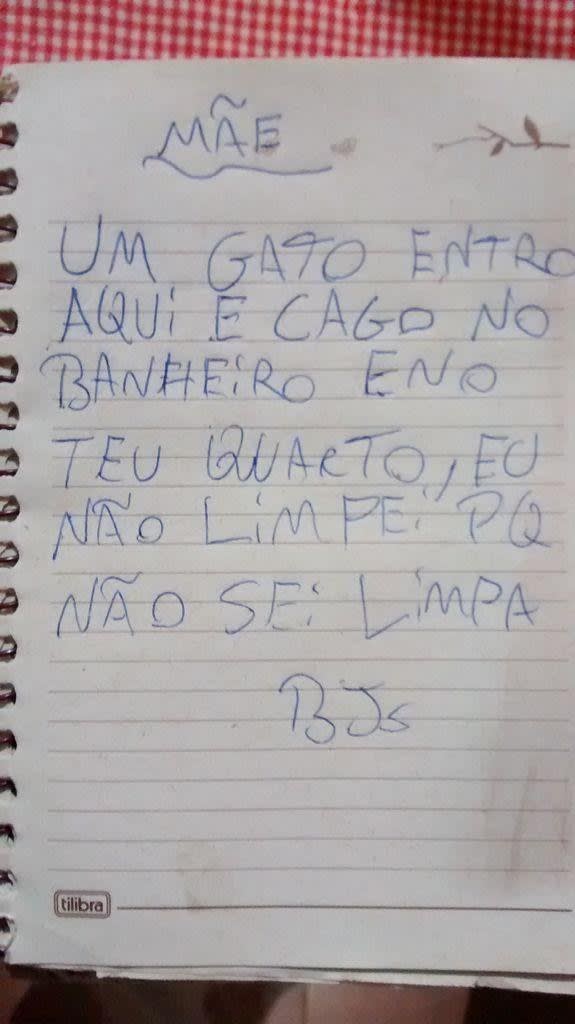 MÃE
UM GATO ENTRO
AQUi E CAGO NO
BANHEiRO ENO
TEU QUARTO, EU
NÃO LiMPEi PQ
NÃO SEi LiMPA
BJs
tilibra